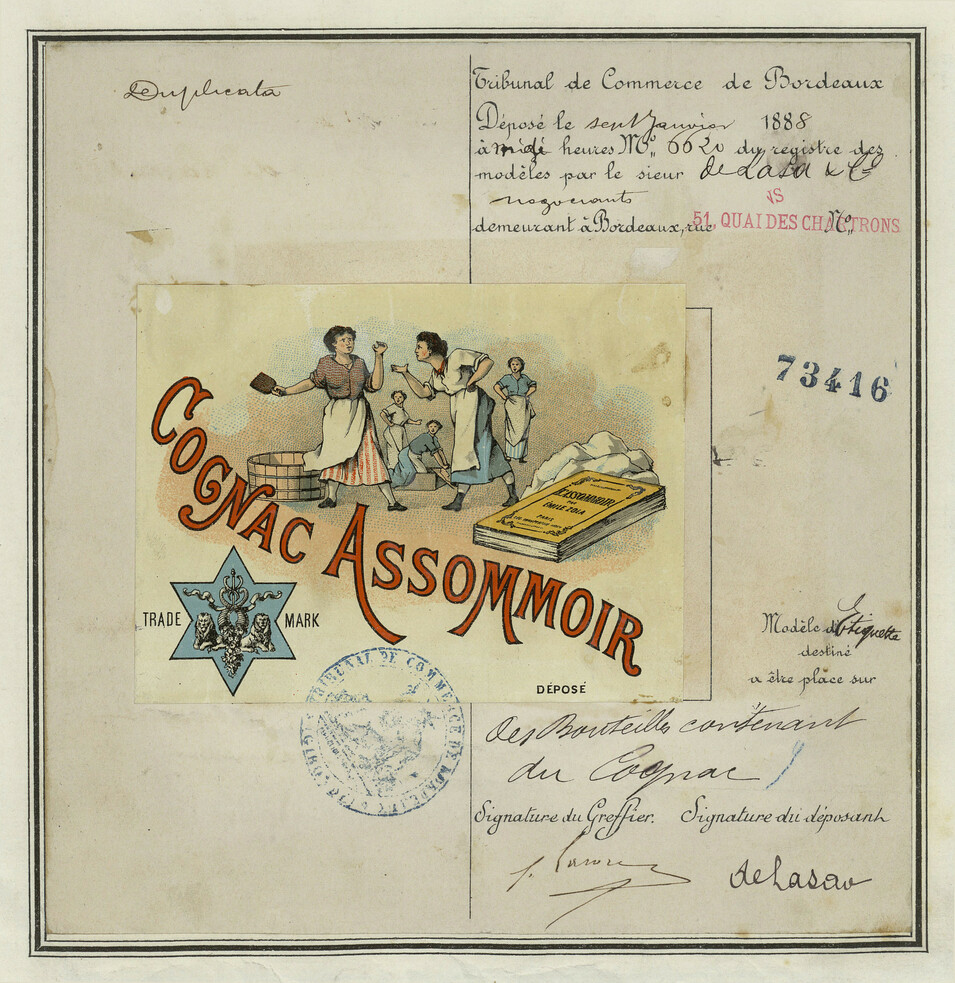 Duplicata
Tribunal de Commerce de Bordeaux
Déposé le sept Janvier 1888
à midi heures No. 6620 du registre des
modèles par le sieur de Lasa & Co
negociants
demeurant à Bordeaux, rue No.
51, QUAI DES CHARTRONS
73416
L'ASSOMMOIR
PAR
ÉMILE ZOLA
PARIS
COGNAC ASSOMMOIR
TRADE MARK
DÉPOSÉ
TRIBUNAL DE COMMERCE DE BORDEAUX
Modèle d'Etiquette
destiné
a être place sur
des Bouteilles contenant
du Cognac
Signature du Greffier. Signature du déposant